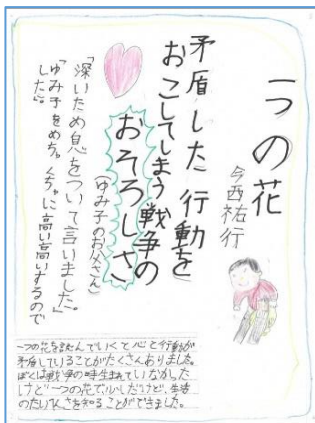 一つの花
今西祐行
矛盾した行動を
おこしてしまう戦争の
おそろしさ
(ゆみ子のお父さん)
「深いため息をついて言いました。」
「ゆみ子をめちゃくちゃに高い高いするので
した。」
一つの花を読んでいくと心と行動が
矛盾していることがたくさんありました。
ぼくは戦争の時生まれていなかった
けど一つの花で少しだけど、生活
のたいへんさを知ることができました。